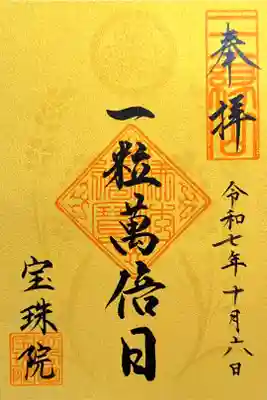 奉拝
一粒萬倍日
令和七年十月六日
宝珠院